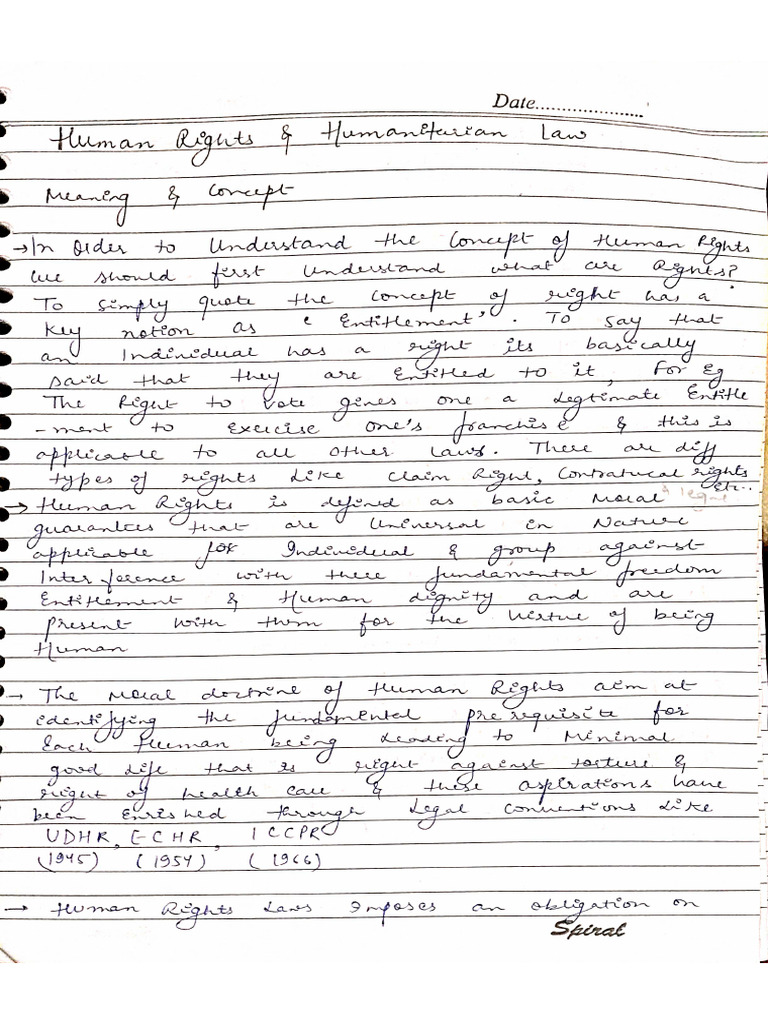 Date....................
Human Rights & Humanitarian Law
Meaning & Concept
→ In Order to Understand the Concept of Human Rights
we should first Understand what are Rights?
To simply quote the concept of right has a
key notion as 'Entitlement'. To say that
an Individual has a right its basically
said that they are Entitled to it, For Eg
The Right to vote gives one a Legtimate Entitle
-ment to Exercise one's franchise & this is
applicable to all other Laws. There are diff
types of rights Like claim Right, Contratucal rights
etc..
→ Human Rights is defined as basic Moral & legal
guaranties that are Universal in Nature
applicable for Individual & group against
Interference with these fundamental freedom
Entitlement & Human dignity and are
present with them for the virtue of being
Human
→ The Moral doctrine of Human Rights aim at
identifying the fundamental prerequisite for
Each Human being Leading to Minimal
good Life that is right against torture &
right of health care & these aspirations have
been Enrished through Legal conventions Like
UDHR, ECHR, ICCPR
(1945) (1954) (1966)
→ Human Rights Laws Imposes an obligation on
Spiral